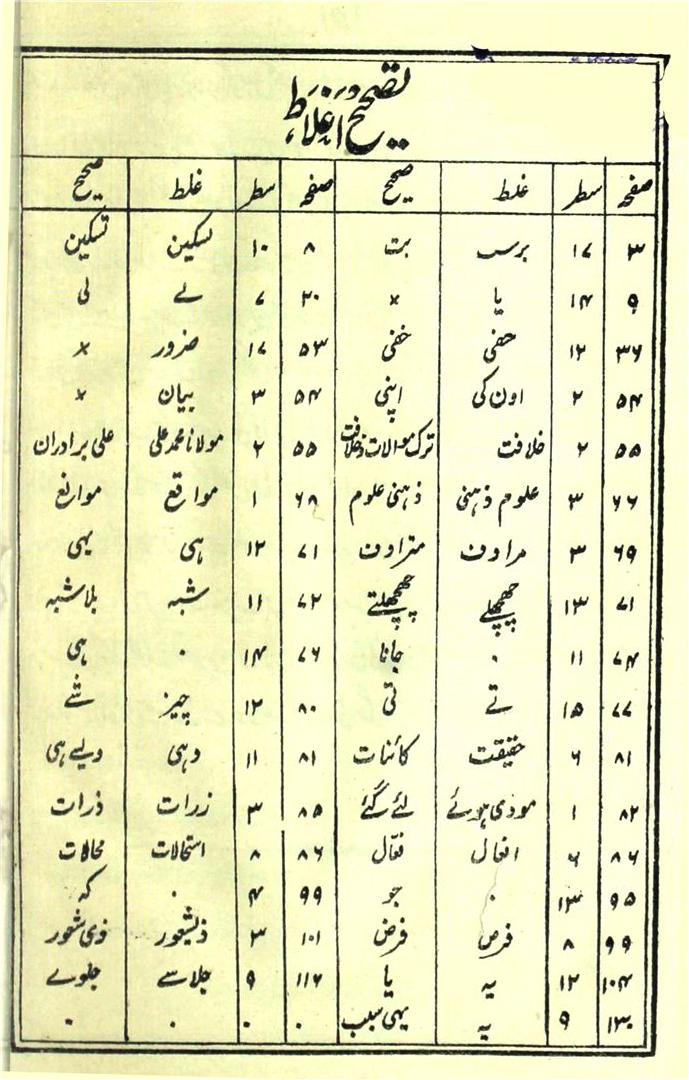 تصحیح اغلاط
صفحہ سطر غلط صحیح صفحہ سطر غلط صحیح
۳ ۱۷ برسب بت ۸ ۱۰ سکین تسکین
۹ ۱۴ یا × ۲۰ ۷ لے لی
۳۶ ۱۲ حفی خفی ۵۳ ۱۷ ضرور ×
۵۴ ۲ اون کی اپنی ۵۴ ۳ بیان ×
۵۵ ۲ خلافت ترک موالات و خلافت ۵۵ ۲ مولانا محمد علی علی برادران
۶۶ ۳ علوم ذہنی ذہنی علوم ۶۸ ۱ مواقع موانع
۶۹ ۳ مرادف مترادف ۷۱ ۱۲ ہی یہی
۷۱ ۱۳ چھچھلے چھچھلتے ۷۲ ۱۱ شبہ بلاشبہ
۷۴ ۱۱ ۰ جانا ۷۶ ۱۴ ۰ ہی
۷۷ ۱۵ تے تی ۸۰ ۱۲ چیز شے
۸۱ ۶ حقیقت کائنات ۸۱ ۱۱ وہی ویسے ہی
۸۲ ۱ مودی ہوئے لئے گئے ۸۵ ۳ زرات ذرات
۸۶ ۶ افعال فعّال ۸۶ ۸ استحالات محالات
۹۵ ۱۳ ۰ جو ۹۹ ۴ ۰ کہ
۹۹ ۸ فرص فرض ۱۰۱ ۳ ذیشعور ذی شعور
۱۰۴ ۱۲ یہ یا ۱۱۶ ۹ جلاسے جلوے
۱۳۰ ۹ یہ یہی سبب ۰ ۰ ۰ ۰